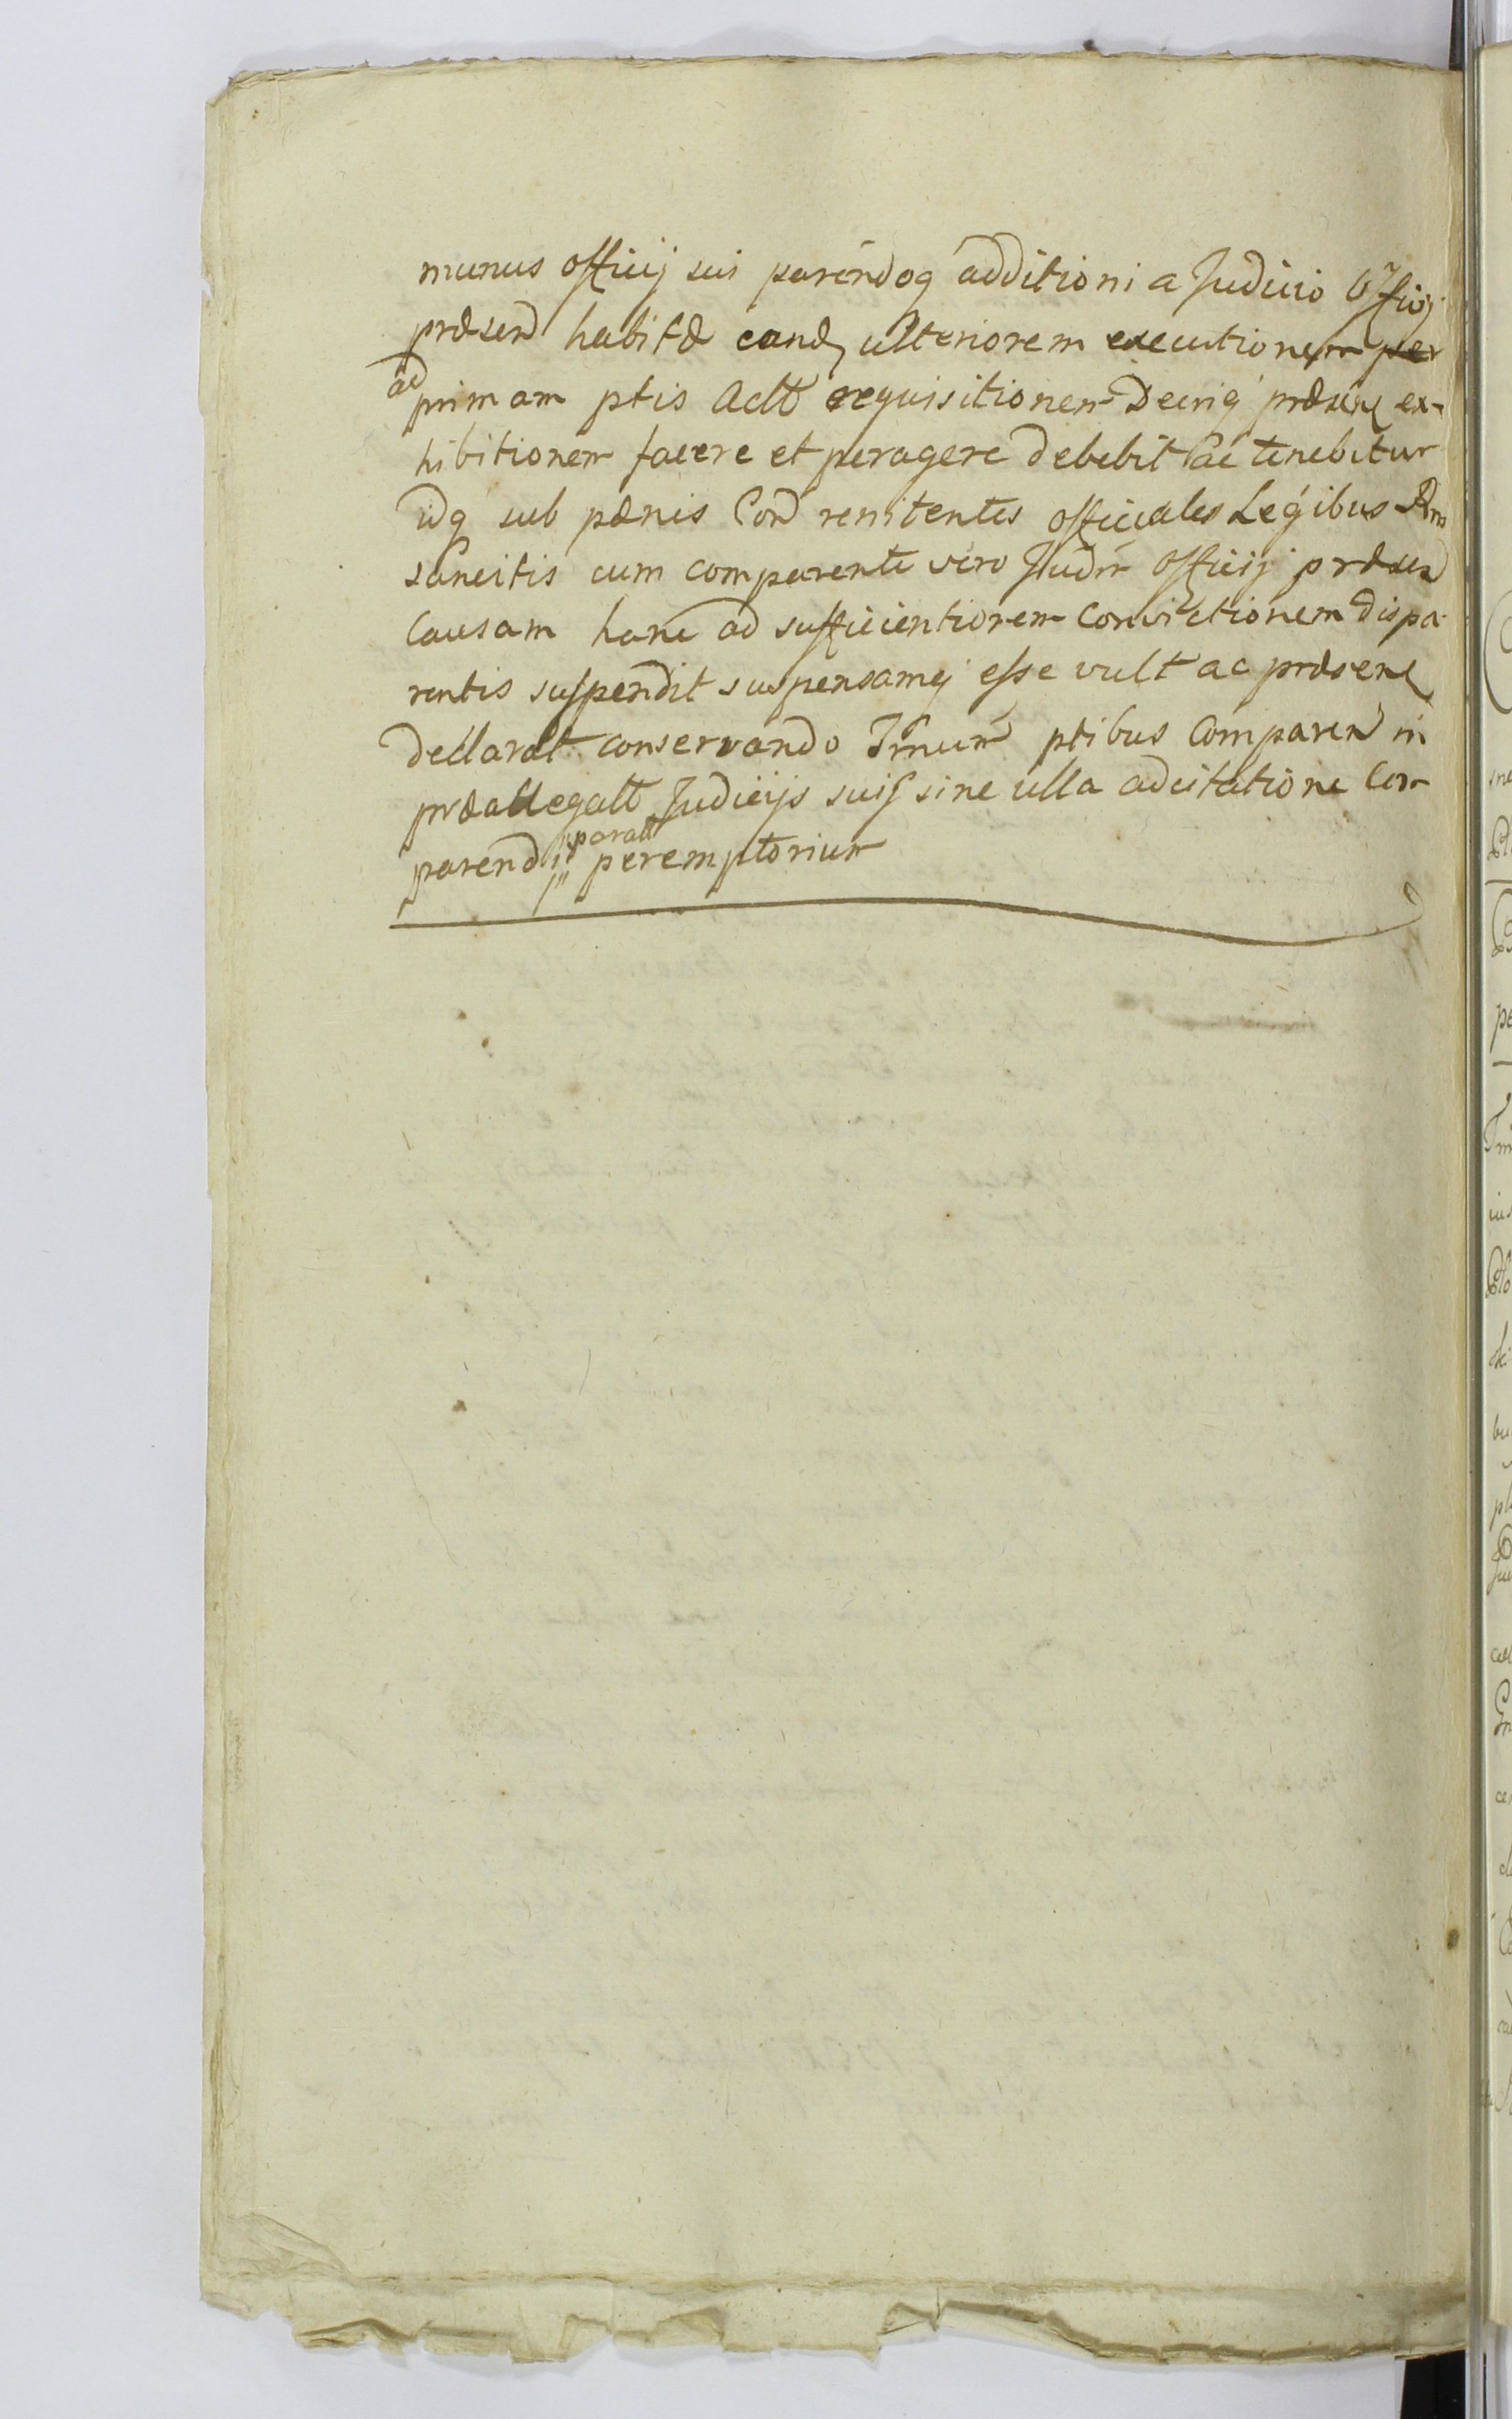 munus officij sui parendoq additioni a Judicio Officij
præsen habitæ eand ulteriorem executionem per
ad
primam ptis Actt requisitionem Decriq præsen ex-
hibitionem facere et peragere debebit ac tenebitur
idq sub pænis Con renitentes officiales Legibus Rni
sancitis cum comparente vero Judm officij præsen
Causam hanc ad sufficientiorem Convictionem dispa-
rentis suspendit suspensamq esse vult ac præsen
declarat conservando Tmum ptibus Comparen in
præallegatt Judicijs suis sine ulla adcitatione Com
paratt
parendi peremptorium